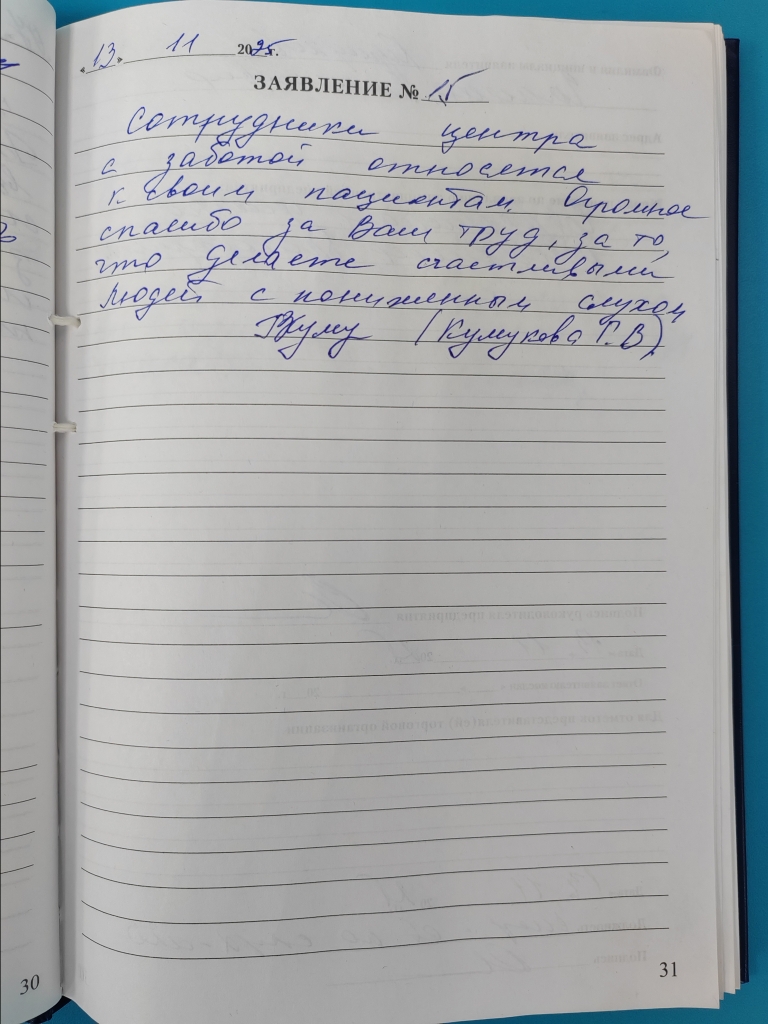 «13» 11 2025г.
ЗАЯВЛЕНИЕ № 15
Сотрудники центра
с заботой относятся
к своим пациентам. Огромное
спасибо за Ваш труд, за то,
что делаете счастливыми
людей с пониженным слухом
(Кумукова Г.В)
30
31